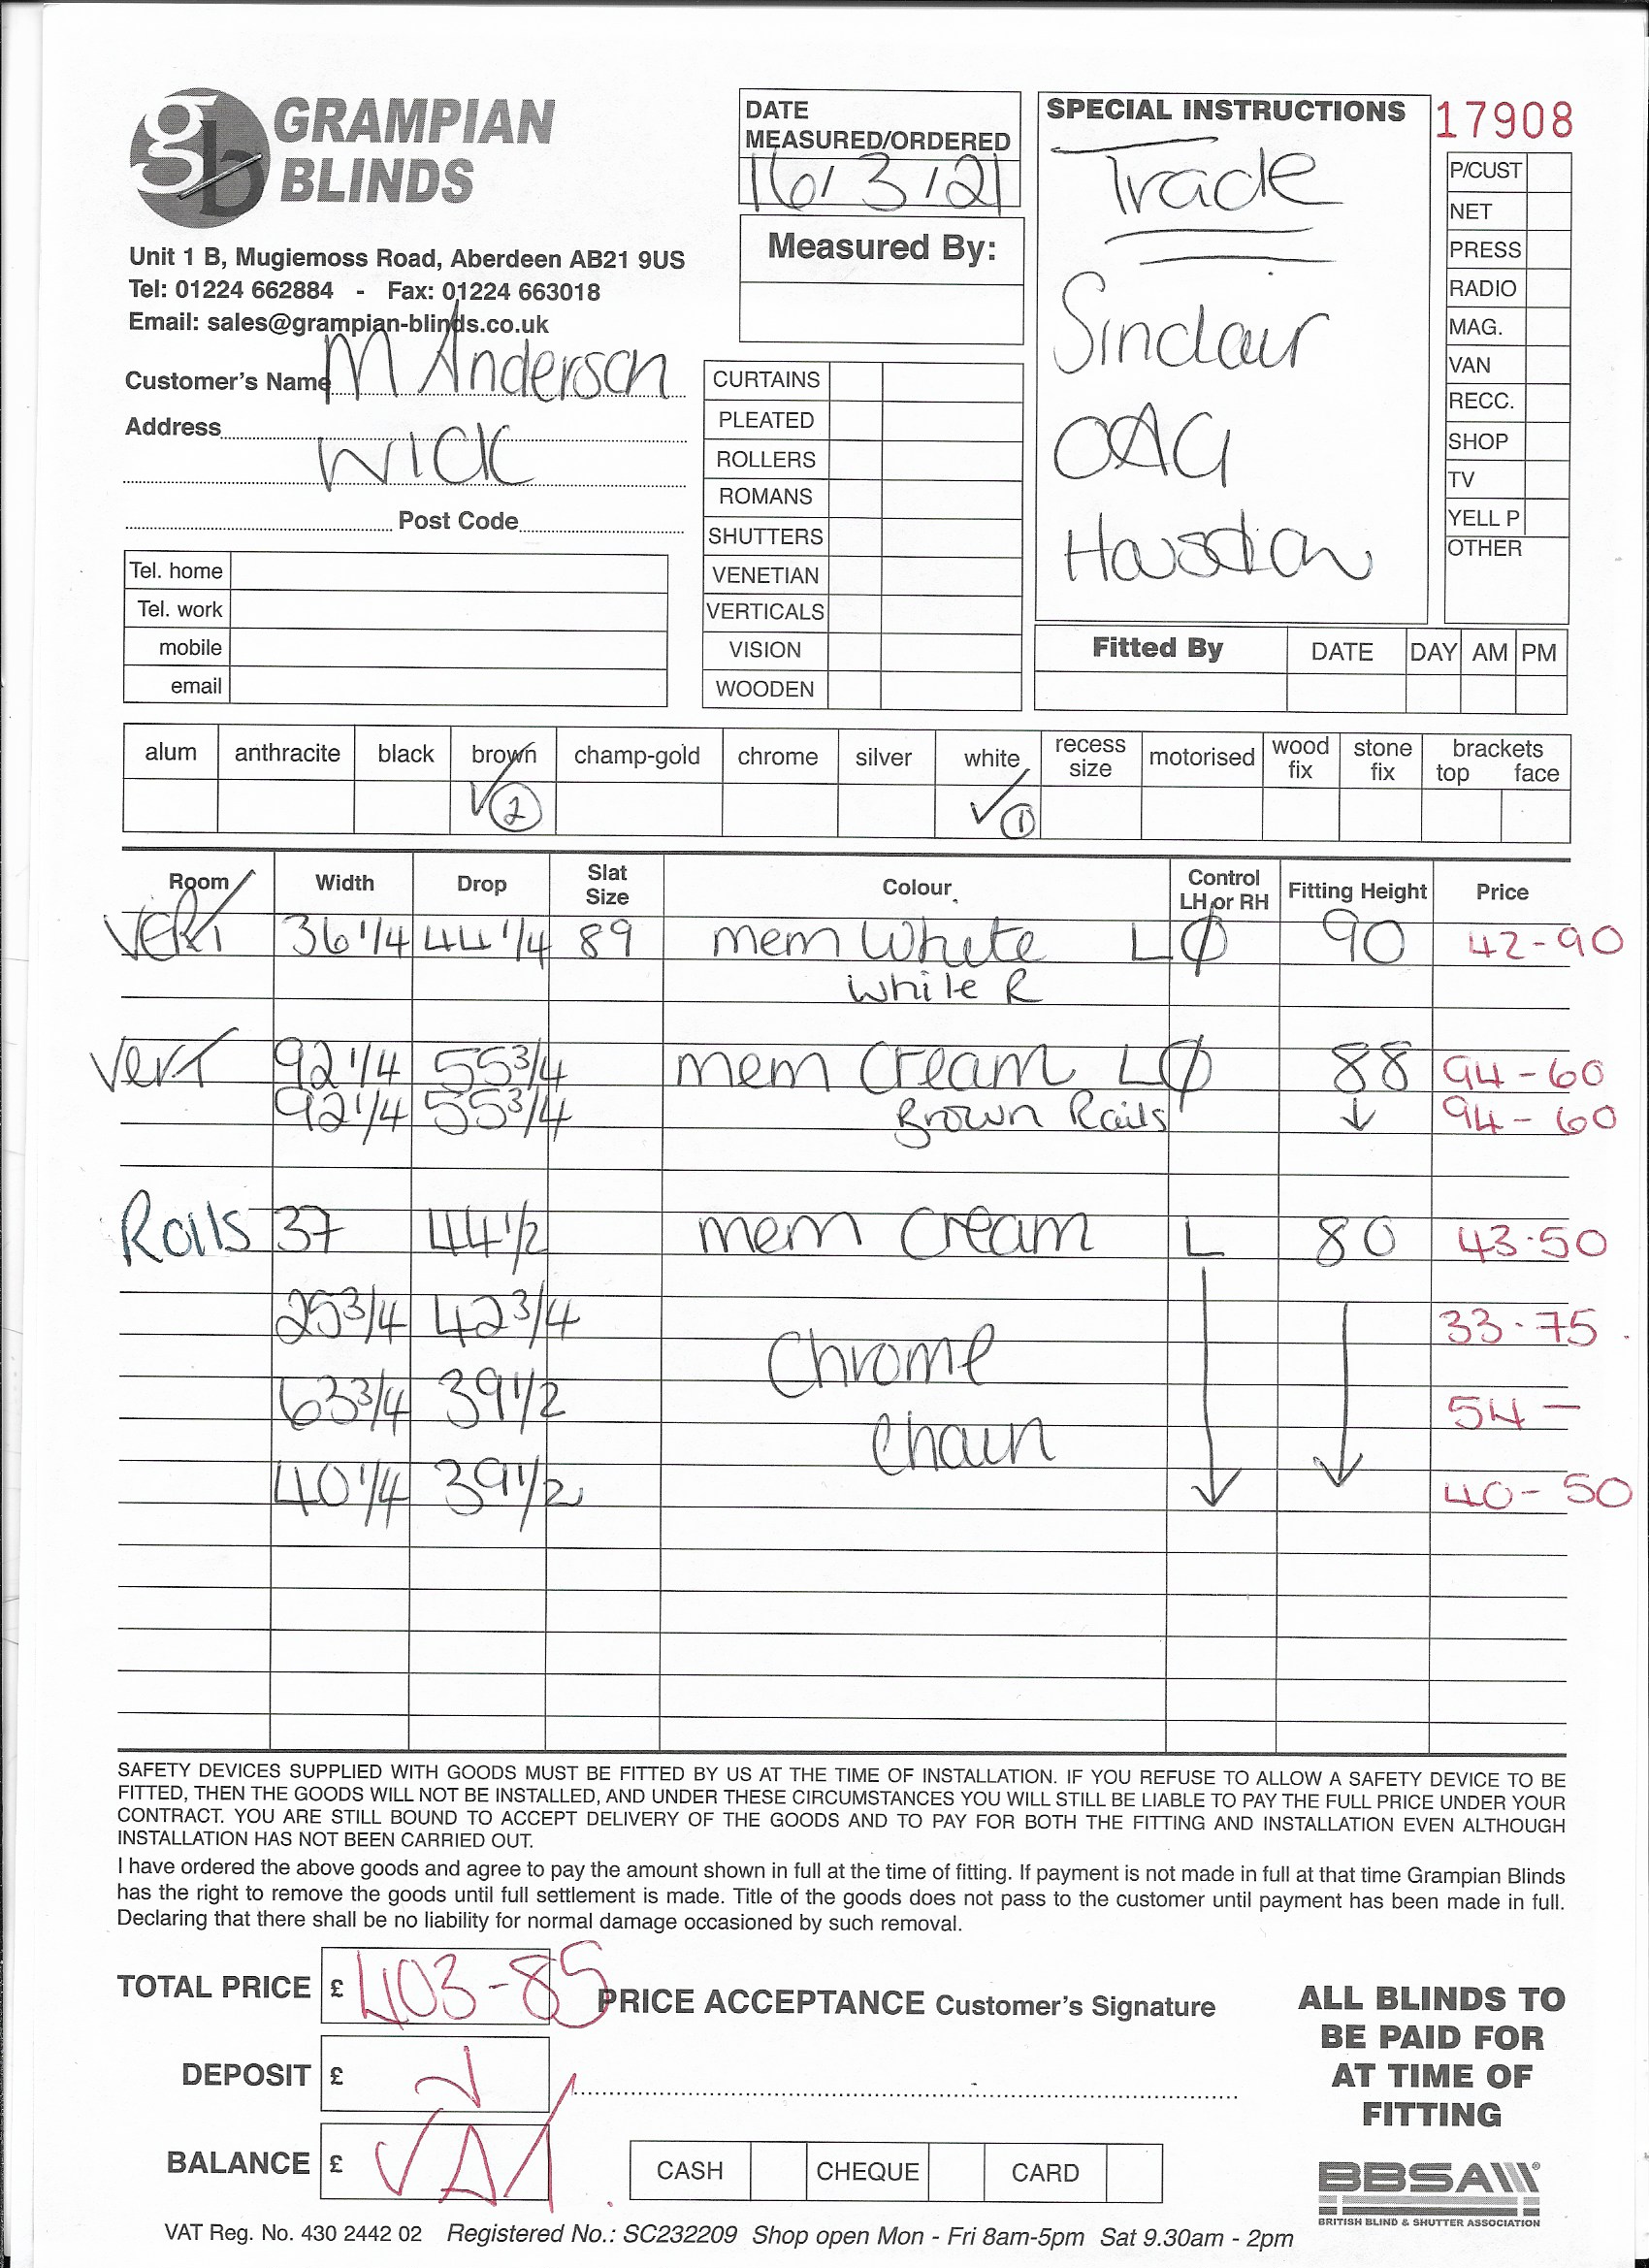 gb GRAMPIAN
BLINDS
Unit 1 B, Mugiemoss Road, Aberdeen AB21 9US
Tel: 01224 662884 - Fax: 01224 663018
Email: sales@grampian-blinds.co.uk
Customer's Name M Anderson
Address
WICK
Post Code
Tel. home
Tel. work
mobile
email
DATE
MEASURED/ORDERED
16/3/21
Measured By:
CURTAINS
PLEATED
ROLLERS
ROMANS
SHUTTERS
VENETIAN
VERTICALS
VISION
WOODEN
SPECIAL INSTRUCTIONS
Trade
Sinclair
OAG
17908
P/CUST
NET
PRESS
RADIO
MAG.
VAN
RECC.
SHOP
TV
YELL P
OTHER
Fitted By DATE DAY AM PM
alum anthracite black brown champ-gold chrome silver white recess size motorised wood fix stone fix brackets top face
✓ 2 ✓ 1
Room Width Drop Slat Size Colour Control LH or RH Fitting Height Price
VERT 36 1/4 44 1/4 89 mem White LØ 90 42-90
White R
Vert 92 1/4 55 3/4 mem Cream LØ 88 94-60
92 1/4 55 3/4 Brown Rails ↓ 94-60
Rolls 37 44 1/2 mem Cream L 80 43.50
25 3/4 42 3/4 33.75
Chrome
63 3/4 39 1/2 54 -
Chain
40 1/4 39 1/2 40-50
SAFETY DEVICES SUPPLIED WITH GOODS MUST BE FITTED BY US AT THE TIME OF INSTALLATION. IF YOU REFUSE TO ALLOW A SAFETY DEVICE TO BE
FITTED, THEN THE GOODS WILL NOT BE INSTALLED, AND UNDER THESE CIRCUMSTANCES YOU WILL STILL BE LIABLE TO PAY THE FULL PRICE UNDER YOUR
CONTRACT. YOU ARE STILL BOUND TO ACCEPT DELIVERY OF THE GOODS AND TO PAY FOR BOTH THE FITTING AND INSTALLATION EVEN ALTHOUGH
INSTALLATION HAS NOT BEEN CARRIED OUT.
I have ordered the above goods and agree to pay the amount shown in full at the time of fitting. If payment is not made in full at that time Grampian Blinds
has the right to remove the goods until full settlement is made. Title of the goods does not pass to the customer until payment has been made in full.
Declaring that there shall be no liability for normal damage occasioned by such removal.
TOTAL PRICE £ 403-85
PRICE ACCEPTANCE Customer's Signature
DEPOSIT £
BALANCE £
CASH CHEQUE CARD
ALL BLINDS TO
BE PAID FOR
AT TIME OF
FITTING
BBSA
BRITISH BLIND & SHUTTER ASSOCIATION
VAT Reg. No. 430 2442 02 Registered No.: SC232209 Shop open Mon - Fri 8am-5pm Sat 9.30am - 2pm